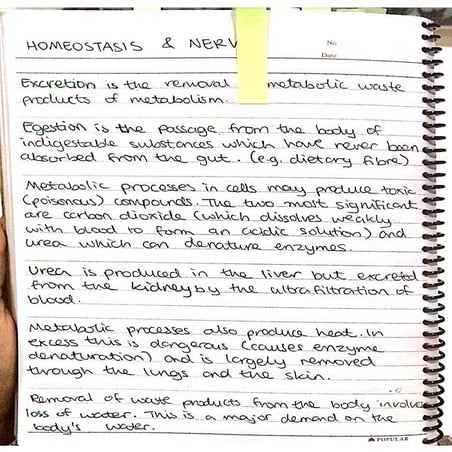 HOMEOSTASIS & NERV
No
Date
Excretion is the removal metabolic waste
products of metabolism.
Egestion is the passage from the body of
indigestable substances which have never been
absorbed from the gut. (e.g. dietary fibre)
Metabolic processes in cells may produce toxic
(poisonous) compounds. The two most significant
are carbon dioxide (which dissolves weakly
with blood to form an acidic solution) and
urea which can denature enzymes.
Urea is produced in the liver but excreted
from the kidney by the ultrafiltration of
blood.
Metabolic processes also produce heat. In
excess this is dangerous (causes enzyme
denaturation) and is largely removed
through the lungs and the skin.
Removal of waste products from the body involve
loss of water. This is a major demand on the
body's water.
POPULAR